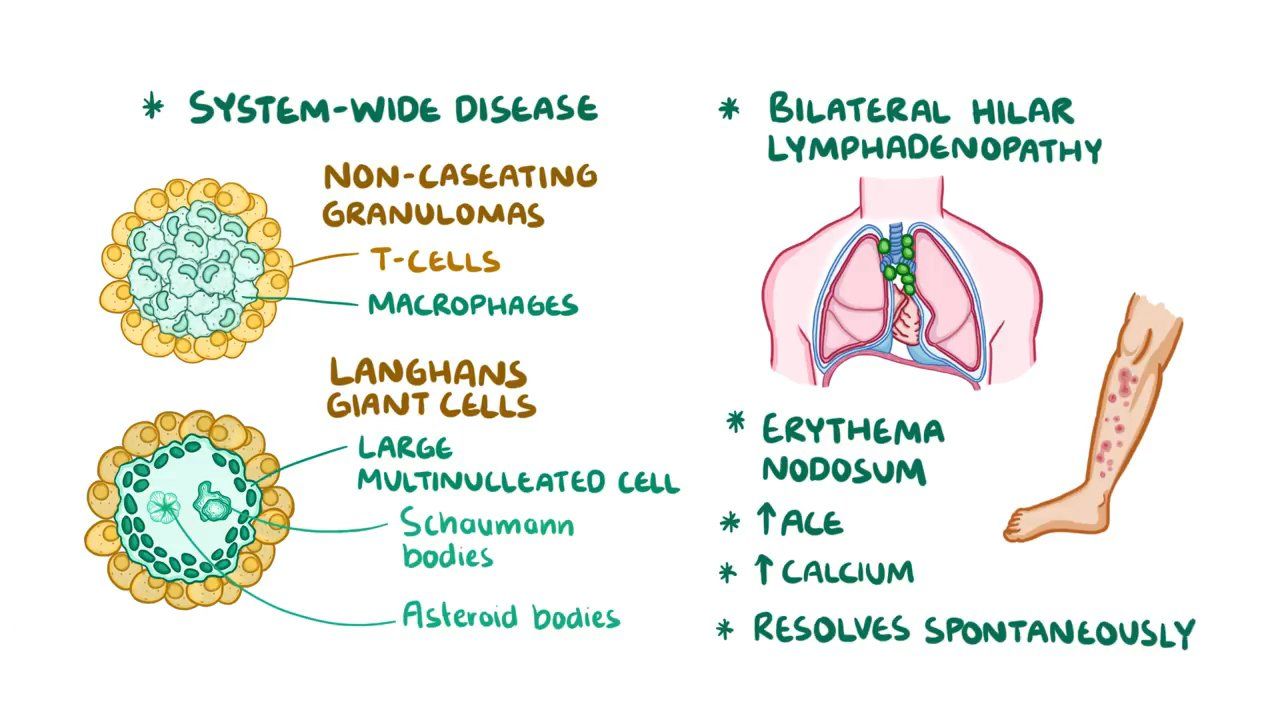 * SYSTEM-WIDE DISEASE
NON-CASEATING
GRANULOMAS
T-CELLS
MACROPHAGES
LANGHANS
GIANT CELLS
LARGE
MULTINUCLEATED CELL
Schaumann
bodies
Asteroid bodies
* BILATERAL HILAR
LYMPHADENOPATHY
* ERYTHEMA
NODOSUM
* ↑ ACE
* ↑ CALCIUM
* RESOLVES SPONTANEOUSLY